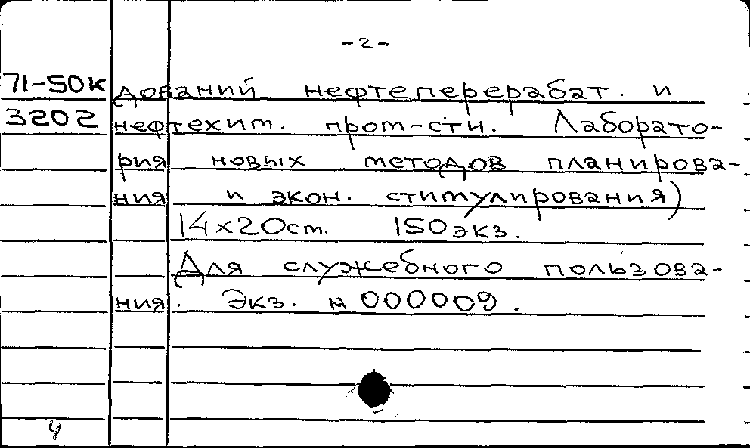 -2-
71-50к дований нефтеперерабат. и
3202 нефтехим. пром-сти. Лаборато-
рия новых методов планирова-
ния и экон. стимулирования)
14х20см. 150экз.
Для служебного пользова-
ния. Экз. № 000009.
4